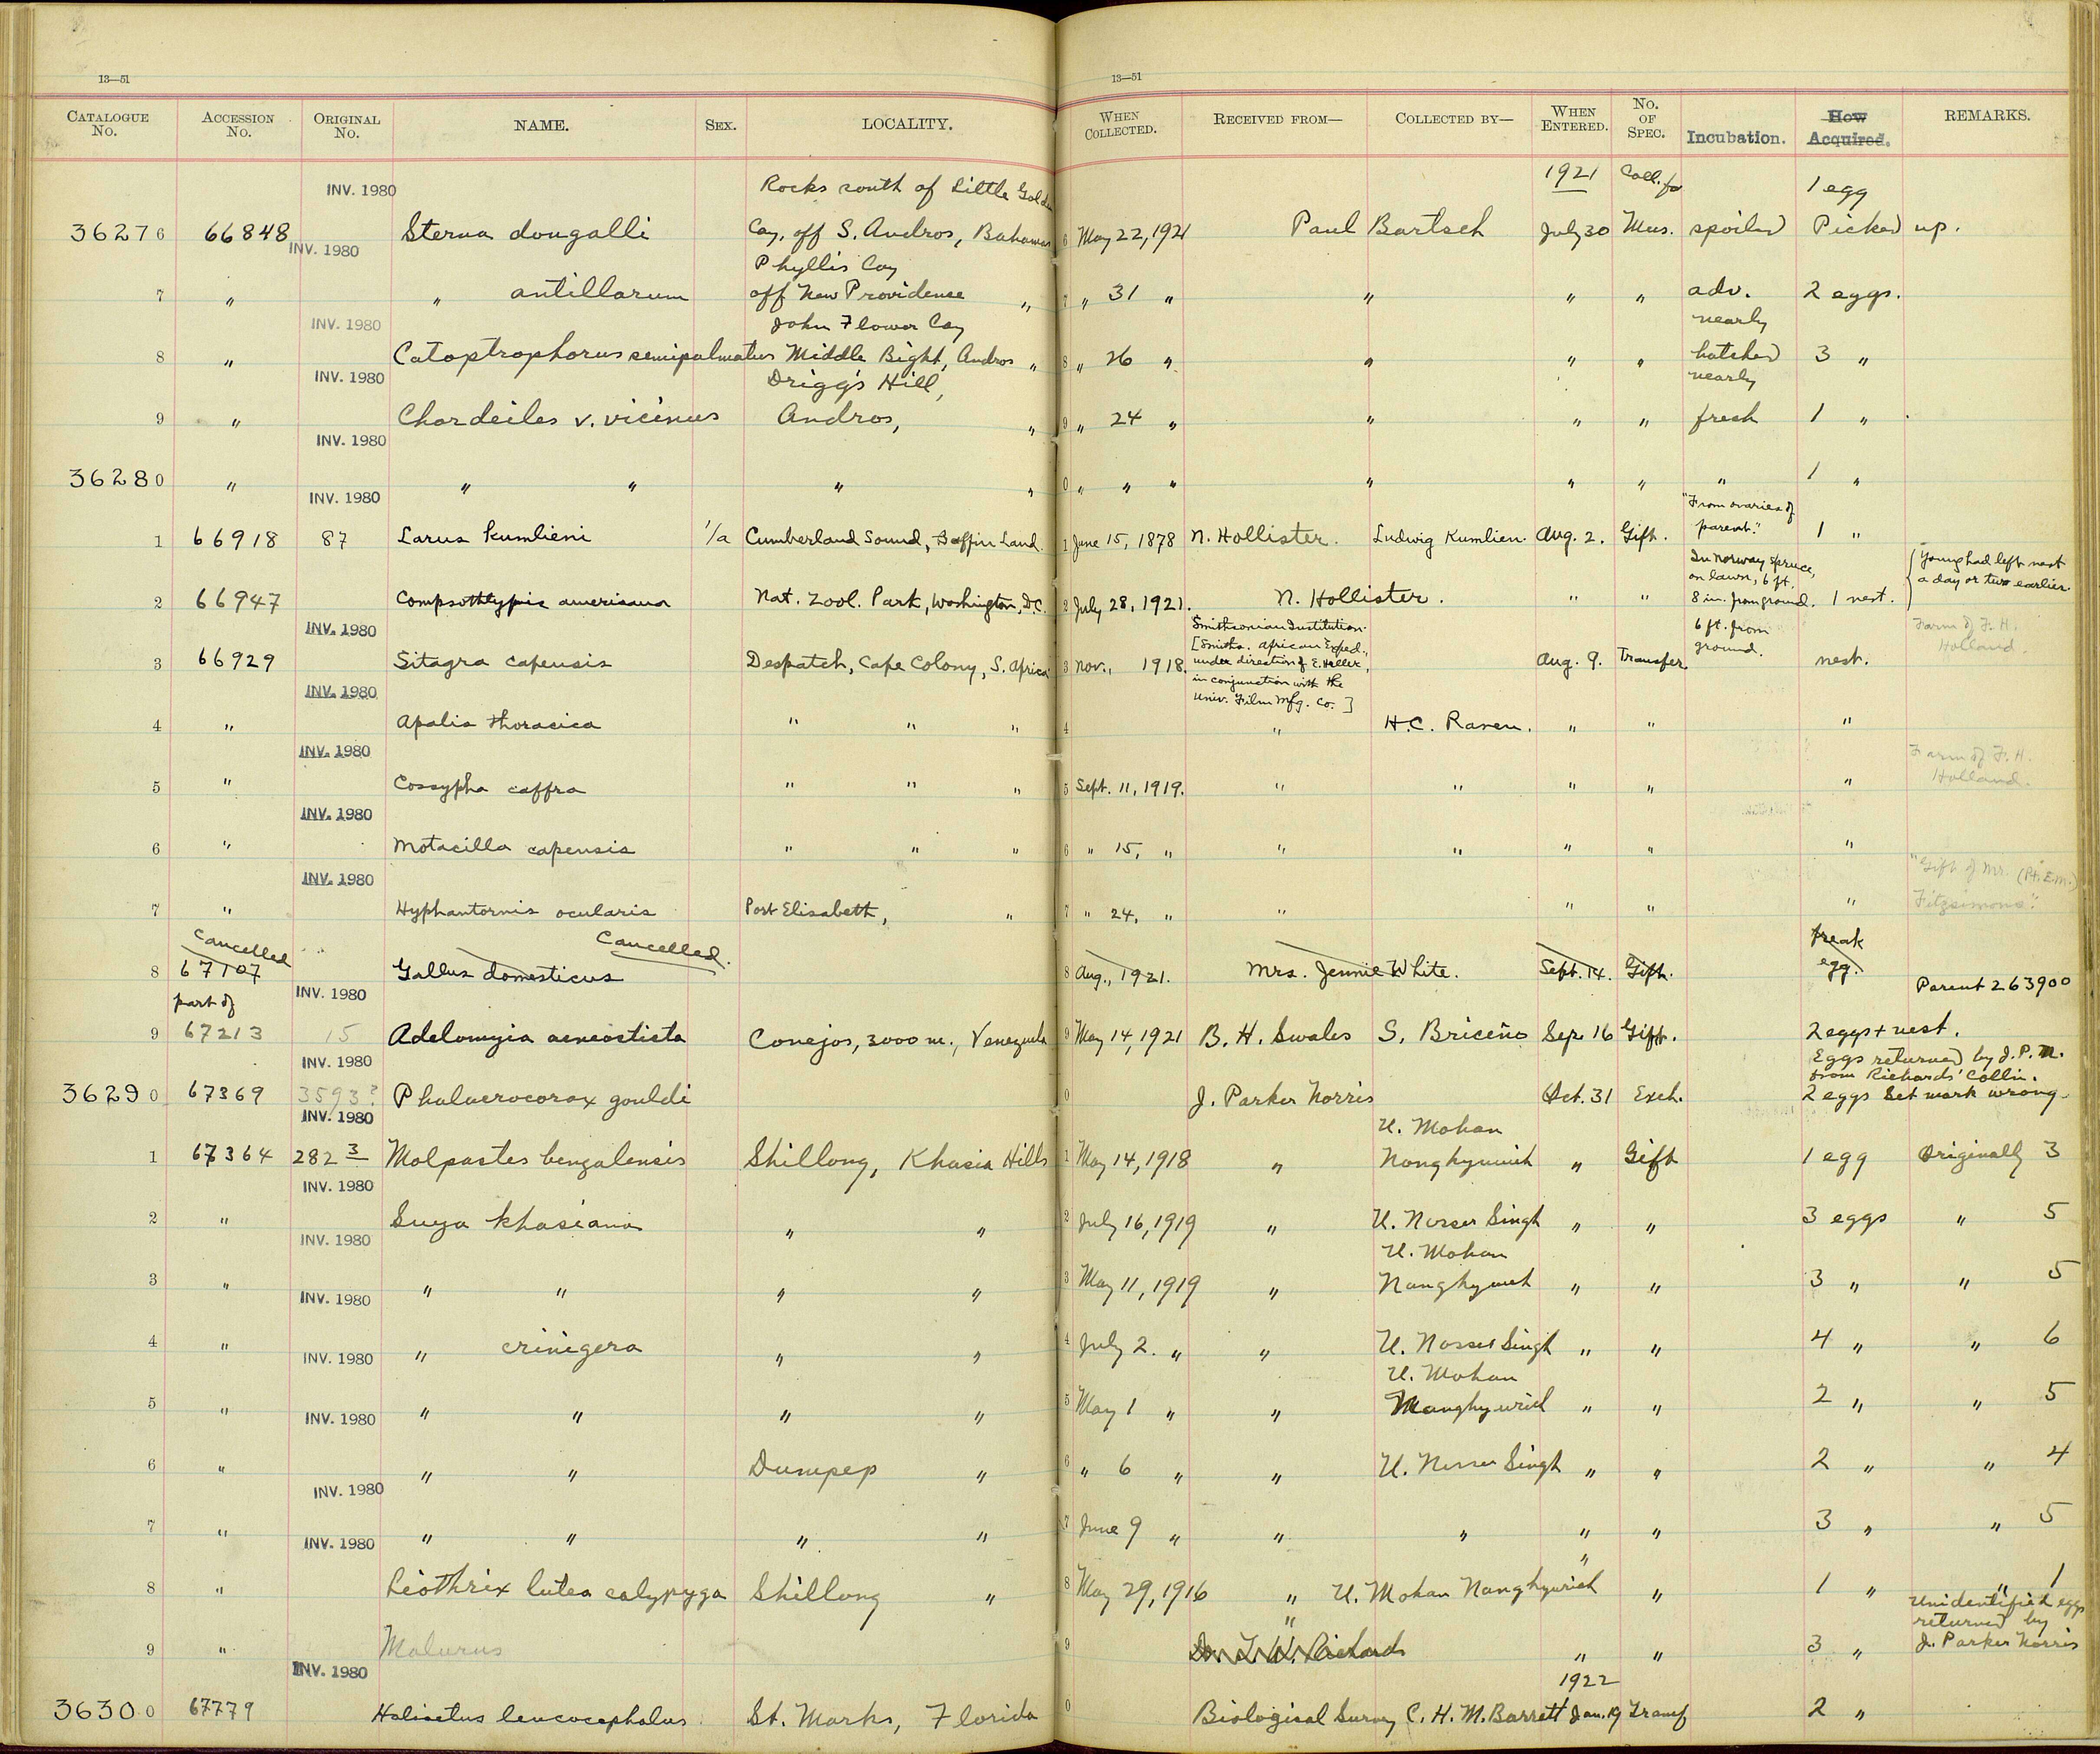 13—51
13—51
CATALOGUE No. ACCESSION No. ORIGINAL No. NAME. SEX. LOCALITY. WHEN COLLECTED. RECEIVED FROM— COLLECTED BY— WHEN ENTERED. No. OF SPEC. Incubation. How Acquired. REMARKS.
INV. 1980 Rocks south of Little Golden 1921 Coll. for 1 egg
36276 66848 Sterna dougalli Cay, off S. Andros, Bahamas 6 May 22, 1921 Paul Bartsch July 30 Mus. spoiled Picked up.
INV. 1980 Phyllis Cay
7 " " antillarum off New Providence " 7 " 31 " " " " adv. 2 eggs.
INV. 1980 John Flower Cay nearly
8 " Catoptrophorus semipalmatus Middle Bight, Andros " 8 " 26 " " " " hatched 3 "
INV. 1980 Driggs Hill, nearly
9 " Chordeiles v. vicinus Andros, " 9 " 24 " " " " fresh 1 "
INV. 1980
36280 " " " " " 0 " " " " " " " 1 "
INV. 1980 "From ovaries of
1 66918 87 Larus kumlieni 1/a Cumberland Sound, Baffin Land. 1 June 15, 1878 N. Hollister. Ludwig Kumlien. Aug. 2. Gift. parent." 1 "
In Norway spruce, on lawn, 6 ft. Young had left nest
2 66947 Compsothlypis americana Nat. Zool. Park, Washington, D.C. 2 July 28, 1921. N. Hollister. " " 8 in. from ground. 1 nest. a day or two earlier.
INV. 1980 Smithsonian Institution. 6 ft. from Farm of F. H.
[Smiths. African Exped., ground. Holland.
3 66929 Sitagra capensis Despatch, Cape Colony, S. Africa 3 Nov., 1918. under direction of E. Heller, Aug. 9. Transfer. nest.
INV. 1980 in conjunction with the
Univ. Film Mfg. Co.]
4 " Apalis thoracica " " " 4 " H.C. Raven. " " "
INV. 1980 Farm of F. H.
Holland.
5 " Cossypha caffra " " " 5 Sept. 11, 1919. " " " " "
INV. 1980
6 " Motacilla capensis " " " 6 " 15, " " " " " "
INV. 1980 "Gift of Mr.
7 " Hyphantornis ocularis Port Elisabeth, " 7 " 24, " " " " " Fitzsimons".
Cancelled Cancelled. freak
8 67107 Gallus domesticus 8 Aug., 1921. Mrs. Jennie White. Sept. 14. Gift. egg.
part of INV. 1980 Parent 263900
9 67213 15 Adelomyia aeneosticta Conejos, 3000 m., Venezuela 9 May 14, 1921 B. H. Swales S. Briceño Sep 16 Gift. 2 eggs + nest.
INV. 1980 Eggs returned by J. P. N.
from Richards' Colln.
36290 67369 3593? Phalacrocorax gouldi 0 J. Parker Norris Oct. 31 Exch. 2 eggs Set mark wrong.
INV. 1980 U. Mohan
1 67364 282 3 Molpastes bengalensis Shillong, Khasia Hills 1 May 14, 1918 " Nonghyurich " Gift 1 egg Originally 3
INV. 1980
2 " Suya khasiana " " 2 July 16, 1919 " U. Nosser Singh " " 3 eggs " 5
INV. 1980 U. Mohan
3 " " " " " 3 May 11, 1919 " " " 3 " " 5
INV. 1980
4 " " crinigera " " 4 July 2. " " U. Nosser Singh " " 4 " " 6
INV. 1980 U. Mohan
5 " " " " " 5 May 1 " " " " 2 " " 5
INV. 1980
6 " " " Dumpep " 6 " 6 " " U. Nosser Singh " " 2 " " 4
INV. 1980
7 " " " " " 7 June 9 " " " " " 3 " " 5
INV. 1980
8 " Liothrix lutea calypyga Shillong " 8 May 29, 1916 " U. Mohan Nonghyurich " " 1 " " 1
Unidentified eggs
returned by
9 " Malurus 9 " Dr. T. W. Richards " " 3 " J. Parker Norris
INV. 1980 1922
36300 67779 Haliaetus leucocephalus St. Marks, Florida 0 Biological Survey C. H. M. Barrett Jan. 19 Transf 2 "